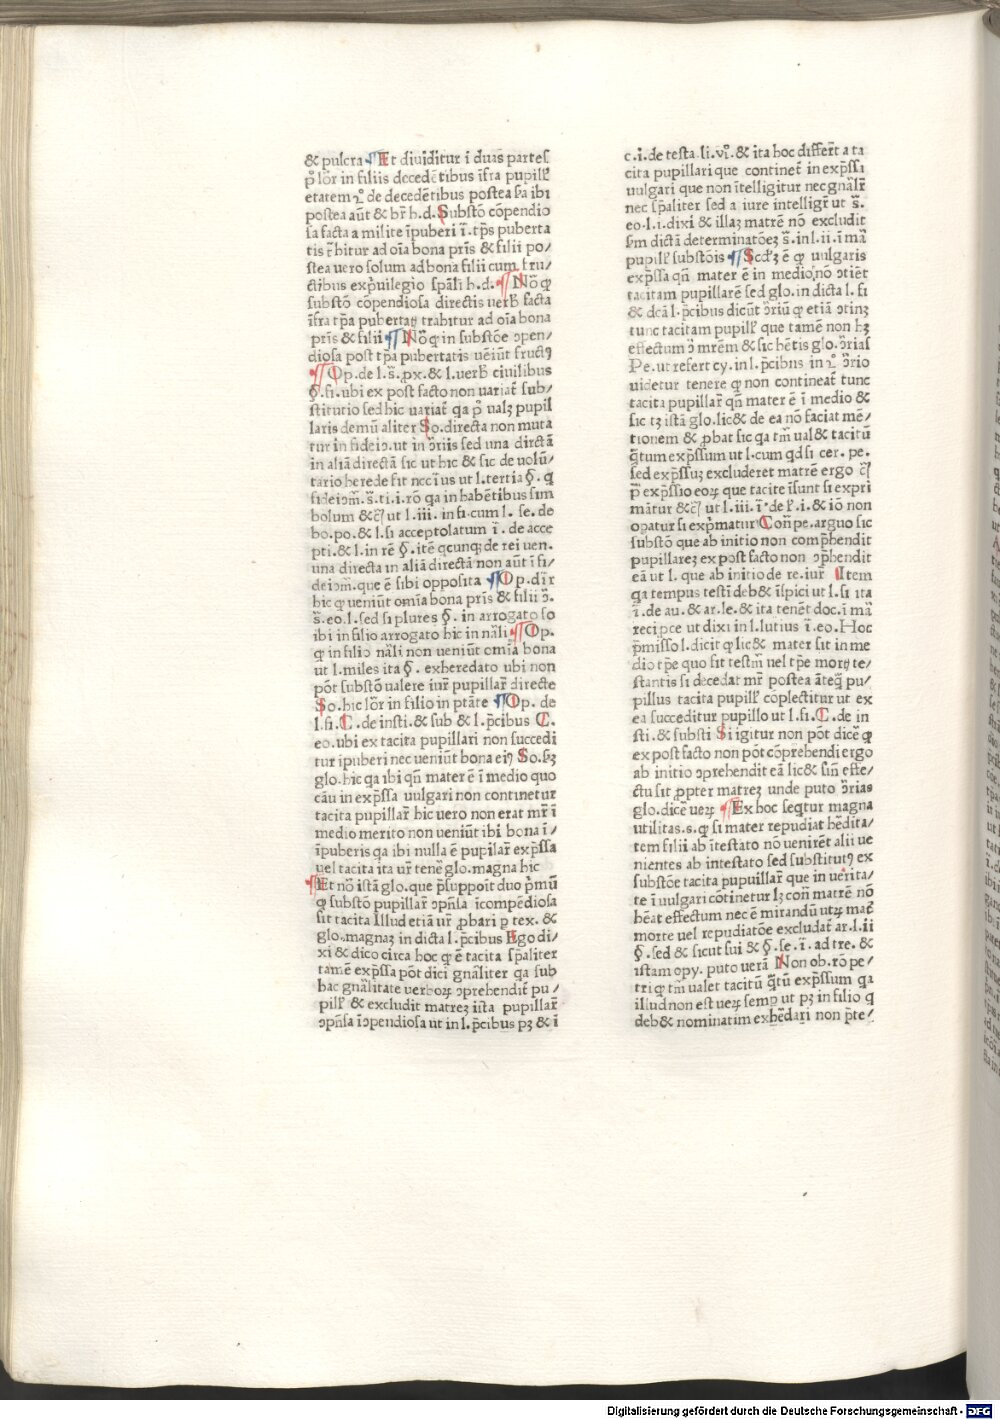 & pulcra ¶ Et diuiditur ī duas partes
p̊ loꝛ̄ in filiis decedētibus īfra pupill̓
etatem ꝫ̊ de decedētibus postea s̄a ibi
postea aūt & br̄ h.d. Substō cōpendio
sa facta a milite īpuberi ī.tp̄s puberta
tis tr̄hitur ad oīa bona pr̄is & filii po/
stea uero solum ad bona filii cum fru/
ctibus exp̄uilegio spāli h.d. ¶ Nō ꝙ
substō cōpendiosa directis uerb̄ facta
īfra tp̄a pubertatꝭ trahitur ad oīa bona
pr̄is & filii ¶ Nō ꝙ in substōe ɔpen/
diosa post tp̄a pubertatis ueīūt fructꝰ
¶ Op.de l.s̄.ꝓx.& l.uerb̄ ciuilibus
§.fi.ubi ex post facto non uariat̄ sub/
stitutio sed hic uariat̄ qa p̊ ualꝫ pupil
laris demū aliter So.directa non muta
tur in fideiɔ.ut in ɔ̄riis sed una dirctā
in aliā directā sic ut hic & sic de uolū/
tario herede fit necīus ut l.tertia §.q
fideiom̄.s̄.ti.i.rō qa in habētibus sim
bolum &c̄ ut l.iii.in fi.cum l.se.de
bo.po.& l.si acceptolatum ī.de acce
pti.& l.in rē §.itē qcunqꝫ de rei uen.
una directa in aliā directā non aūt ī fi/
deiom̄.que ē sibi opposita ¶ Op.dīr̄
hic ꝙ ueniūt omīa bona pr̄is & filii ɔ̄.
s̄.eo.l.sed si plures §.in arrogato so
ibi in filio arrogato hic in nāli ¶ Op.
ꝙ in filio nāli non ueniūt omīa bona
ut l.miles ita §.exheredato ubi non
pōt substō ualere iur̄ pupillar̄ directe
So.hic loꝛ̄ in filio in ptāte ¶ Op.de
l.fi.C.de insti.& sub & l.p̄cibus C.
eo.ubi ex tacita pupillari non succedi
tur ipuberi nec ueniūt bona eiꝰ So.s̄ꝫ
glo.hic qa ibi qn̄ mater ē ī medio quo
cāu in exp̄ssa uulgari non continetur
tacita pupillar̄ hic uero non erat mr̄ ī
medio merito non ueniūt ibi bona ī/
īpuberis qa ibi nulla ē pupilar̄ exp̄ssa
uel tacita ita ur̄ tenē glo.magna hic
¶ Et nō istā glo.que p̄suppoīt duo p̄mū
ꝙ substō pupillar̄ ɔpn̄sa īcompēdiosa
sit tacita Illud etiā ur̄ ꝓbari ꝑ tex.&
glo.magnaꝫ in dicta l.p̄cibus Ego di/
xi & dico circa hoc ꝙ ē tacita sp̄aliter
tamē exp̄ssa pōt dici gnāliter qa sub
hac gnālitate uerboꝝ ɔprehendit̄ pu/
pill̓ & excludit matreꝫ iista pupillar̄
ɔpn̄sa īɔpendiosa ut in l.p̄cibus pꝫ & ī
c.i.de testa.li.vi̊.& ita hoc differt̄ a ta
cita pupillari que continet̄ in exp̄ssa
uulgari que non ītelligitur nec gnālr̄
nec sp̄aliter sed a iure intelligr̄ ut s̄.
eo.l.i.dixi & illaꝫ matrē nō excludit
s̄m dictā determinatōeꝫ s̄.in l.ii.ī mā
pupill̓ substōis ¶ Scdꝫ ē ꝙ uulgaris
exp̄ssa qn̄ mater ē in medio nō ɔtīēt
tacitam pupillarē sed glo.in dicta l.fi
& dcā l.p̄cibus dicūt ɔ̄riū ꝙ etiā ɔtinꝫ
tunc tacitam pupill̓ que tamē non hꝫ
effectum ɔ̄ mrēm & sic hētis glo.ɔ̄rias
Pe.ut refert cy.in l.p̄cibus in ꝫ̊ ɔ̄rio
uidetur tenere ꝙ non contineat̄ tunc
tacita pupillar̄ qn̄ mater ē ī medio &
sic tꝫ istā glo.lic& de ea nō faciat mē/
tionem & ꝓbat sic qa tm̄ ual& tacitū
q̄tum exp̄ssum ut l.cum qd si cer.pe.
sed exp̄ssuꝫ excluderet matrē ergo &c̄
p̄ exp̄ssio eoꝝ que tacite īsunt si expri
mātur &c̄ ut l.iii.ī.de l̓.i.& iō non
oꝑatur si exp̄matur Con̄ pe.arguo sic
substō que ab initio non comp̄hendit
pupillareꝫ ex post facto non ɔp̄hendit
eā ut l.que ab initio de re.iur̄ Item
qa tempus testī deb& īspici ut l.si ita
ī.de au.& ar.le.& ita tenēt doc.ī mā
recipce ut dixi in l.lutius ī.eo.Hoc
p̄misso l.dicit ꝙ lic& mater sit in me
dio tp̄e quo fit testm̄ uel tp̄e mortꝭ te/
stantis si decedat mr̄ postea āteꝗ pu/
pillus tacita pupill̓ cōplectitur ut ex
ea succeditur pupillo ut l.fi.C.de in
sti.& substi Si igitur non pōt dicē ꝙ
ex post facto non pōt cōprehendi ergo
ab initio ɔprehendit eā lic& sin̄ effe/
ctu sit ꝓpter matreꝫ unde puto ɔ̄rias
glo.dicē ueꝝ ¶ Ex hoc seqtur magna
utilitas.s.ꝙ si mater repudiat hēdita/
tem filii ab ītestato nō uenirēt alii ue
nientes ab intestato sed substitutꝰ ex
substōe tacita pupuillar̄ que in uerita/
te ī uulgari cōtinetur lꝫ con̄ matrē nō
hēat effectum nec ē mirandū utꝝ mat̄
morte uel repudiatōe excludat̄ ar.l.ii
§.sed & sicut sui & §.se.ī.ad tre.&
istam opy.puto uerā Non ob.rō pe/
tri ꝙ tm̄ ualet tacitū q̄tū exp̄ssum qa
illud non est ueꝝ semꝑ ut pꝫ in filio q
deb& nominatim exhēdari non pt̄e/
Digitalisierung gefördert durch die Deutsche Forschungsgemeinschaft - DFG